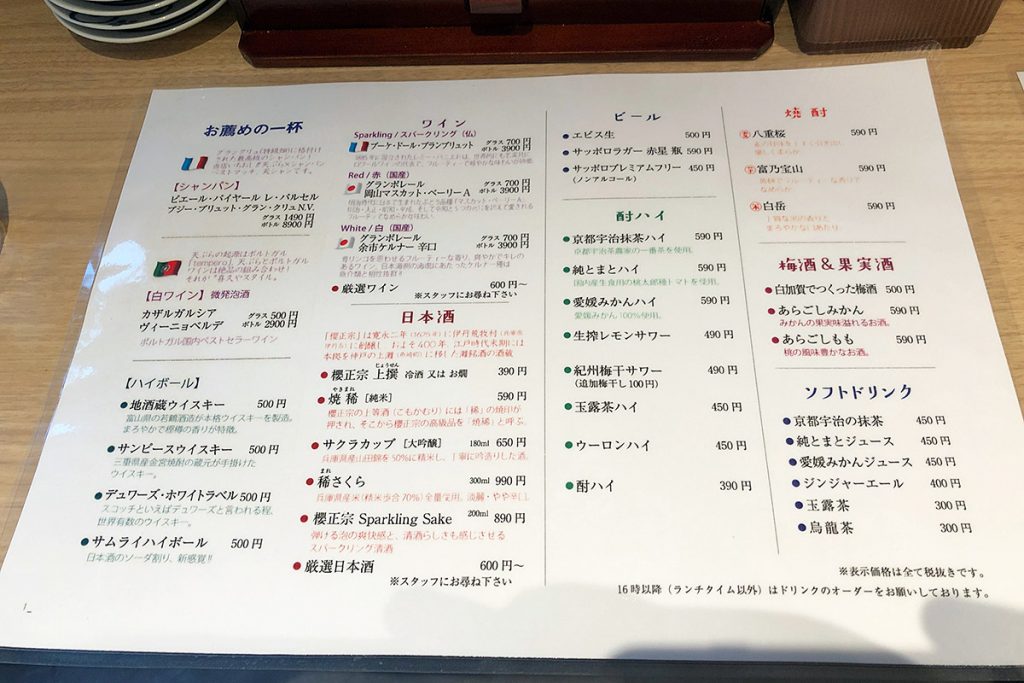 お薦めの一杯
【シャンパン】
ピエール・パイヤール レ・パルセル
ブジー・ブリュット・グラン・クリュ N.V.
グラス 1490円
ボトル 8900円
天ぷらの起源はポルトガル
「tempero」、天ぷらとポルトガル
ワインは絶品の組み合わせ！
それが“喜久やスタイル。
【白ワイン】微発泡酒
カザルガルシア
ヴィーニョベルデ
グラス 500円
ボトル 2900円
ポルトガル国内ベストセラーワイン
【ハイボール】
●地酒蔵ウイスキー 500円
富山県の若鶴酒造が本格ウイスキーを製造。
まろやかで樽樽の香りが特徴。
●サンピースウイスキー 500円
三重県産金宮焼酎の蔵元が手掛けた
ウイスキー。
●デュワーズ・ホワイトラベル 500円
スコッチといえばデュワーズと言われる程、
世界有数のウイスキー。
●サムライハイボール 500円
日本酒のソーダ割り、新感覚!!
ワイン
Sparkling / スパークリング（仏）
ブーケ・ドール・ブランブリュット
グラス 700円
ボトル 3900円
Red / 赤（国産）
グランポレール
岡山マスカット・ベーリーA
グラス 700円
ボトル 3900円
White / 白（国産）
グランポレール
余市ケルナー 辛口
グラス 700円
ボトル 3900円
●厳選ワイン 600円～
※スタッフにお尋ね下さい
日本酒
「櫻正宗」は寛永二年(1625年)に伊丹荒牧村
に創醸し、およそ400年、江戸時代末期には
●櫻正宗 上撰 冷酒 又は お燗 390円
じょうせん
●焼稀 [純米] 590円
やきまれ
櫻正宗の上等酒（こもかむり）には「稀」の焼印が
押され、そこから櫻正宗の高級品を「焼稀」と呼ぶ。
●サクラカップ [大吟醸] 180ml 650円
兵庫県産山田錦を50%に精米し、丁寧に吟造りした酒。
●稀さくら 300ml 990円
まれ
兵庫県産米(精米歩合70%)全量使用。淡麗・やや辛口
●櫻正宗 Sparkling Sake 200ml 890円
弾ける泡の爽快感と、清酒らしさも感じさせる
スパークリング清酒
●厳選日本酒 600円～
※スタッフにお尋ね下さい
ビール
●エビス生 500円
●サッポロラガー 赤星 瓶 590円
●サッポロプレミアムフリー 450円
（ノンアルコール）
酎ハイ
●京都宇治抹茶ハイ 590円
京都宇治茶農家の一番茶を使用。
●純とまとハイ 590円
国内産生食用の桃太郎種トマトを使用。
●愛媛みかんハイ 590円
愛媛みかん100%使用。
●生搾レモンサワー 490円
●紀州梅干サワー 490円
（追加梅干し100円）
●玉露茶ハイ 450円
●ウーロンハイ 450円
●酎ハイ 390円
焼酎
麦 八重桜 590円
芋 富乃宝山 590円
なめらか
米 白岳 590円
まろやかな口あたり。
梅酒＆果実酒
●白加賀でつくった梅酒 500円
●あらごしみかん 590円
みかんの果実味溢れるお酒。
●あらごしもも 590円
桃の風味豊かなお酒。
ソフトドリンク
●京都宇治の抹茶 450円
●純とまとジュース 450円
●愛媛みかんジュース 450円
●ジンジャーエール 400円
●玉露茶 300円
●烏龍茶 300円
※表示価格は全て税抜きです。
16時以降（ランチタイム以外）はドリンクのオーダーをお願いしております。